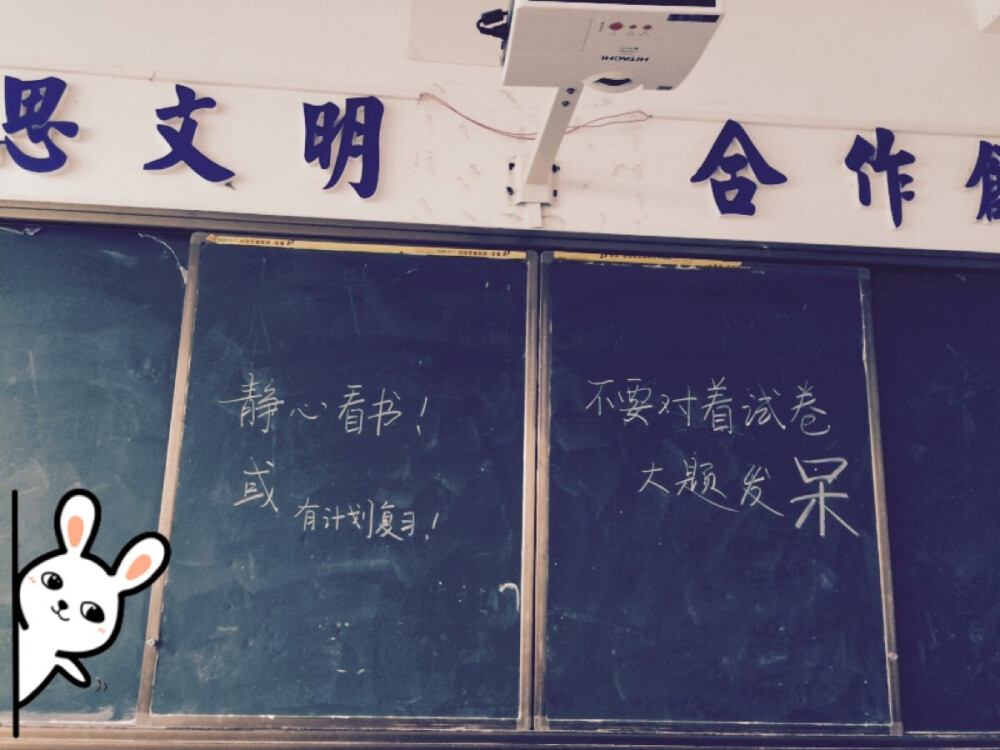 HITACHI
思文明 合作
静心看书!
或
有计划复习!
不要对着试卷
大题发呆